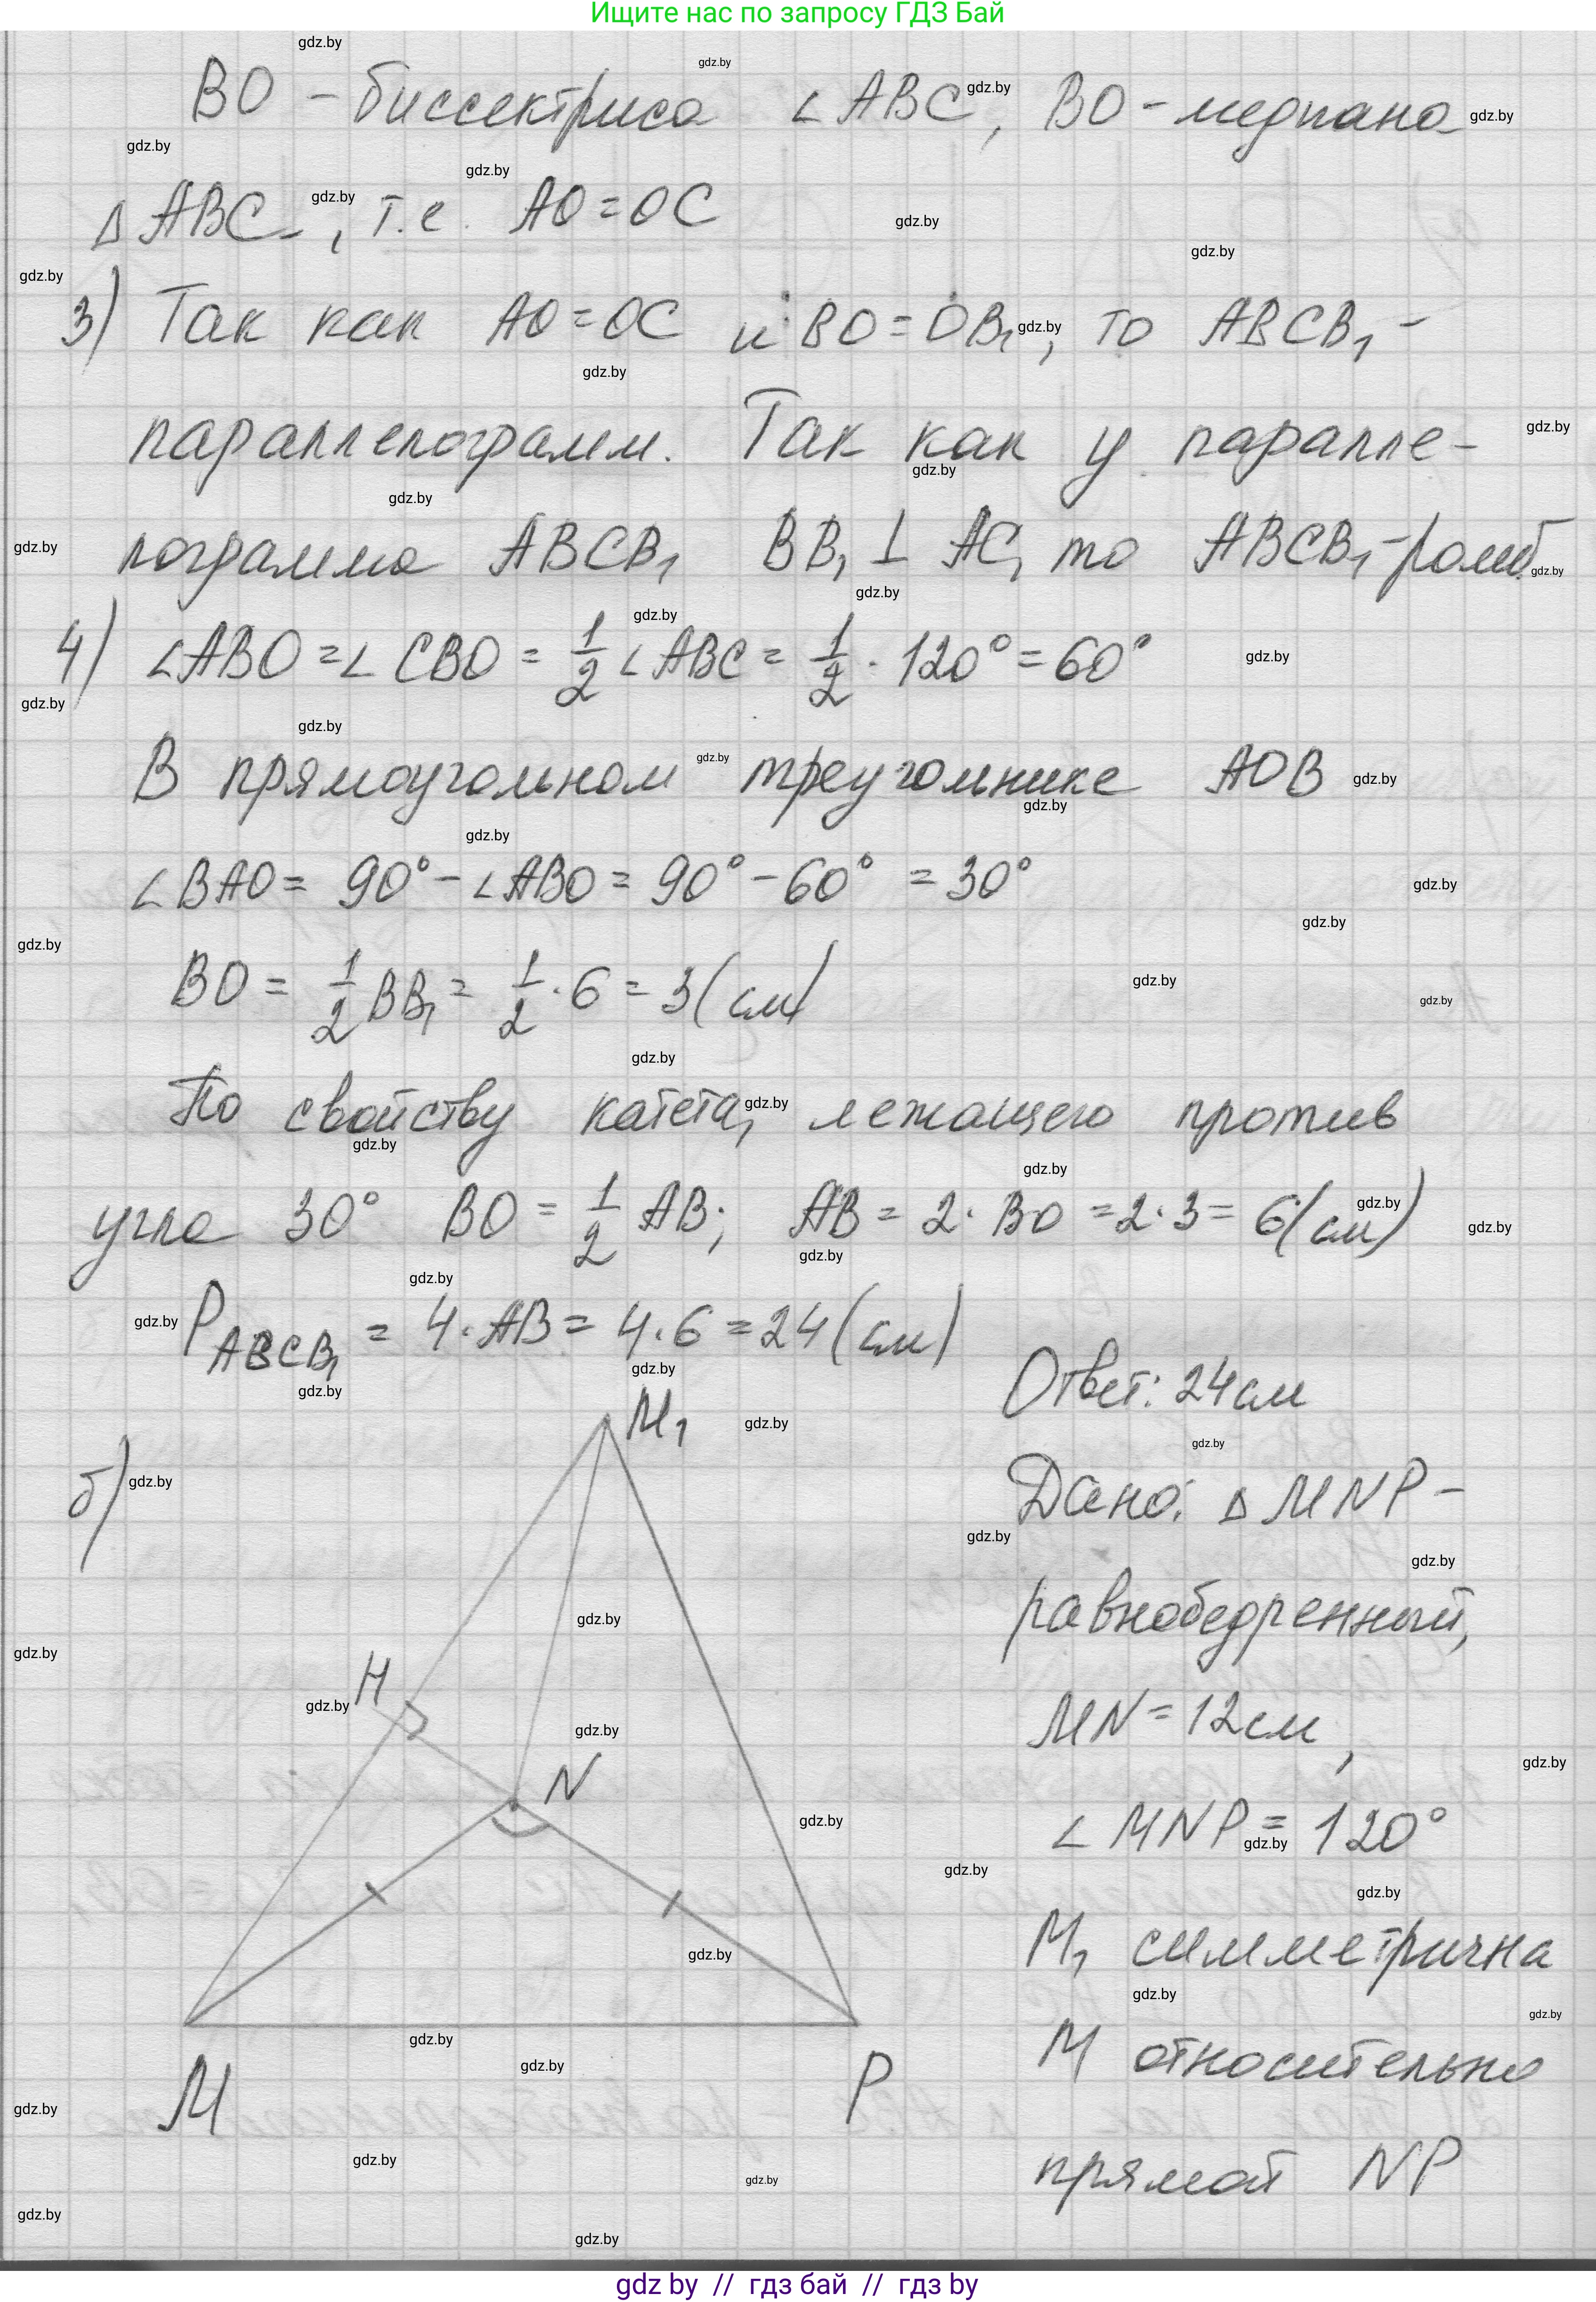 Ищите нас по запросу ГДЗ Бай
BO - биссектриса ∠ABC, BO - медиана
△ABC, т.е. AO = OC
3) Так как AO = OC и BO = OB₁, то ABCB₁ -
параллелограмм. Так как у паралле-
лограмма ABCB₁ BB₁ ⊥ AC, то ABCB₁ - ромб
4) ∠ABO = ∠CBO = 1/2 ∠ABC = 1/2 · 120° = 60°
В прямоугольном треугольнике AOB
∠BAO = 90° - ∠ABO = 90° - 60° = 30°
BO = 1/2 BB₁ = 1/2 · 6 = 3 (см)
По свойству катета, лежащего против
угла 30° BO = 1/2 AB; AB = 2 · BO = 2 · 3 = 6 (см)
P ABCB₁ = 4 · AB = 4 · 6 = 24 (см)
Ответ: 24 см
б)
M₁
H
N
M
P
Дано: △MNP -
равнобедренный,
MN = 12 см,
∠MNP = 120°
M₁ симметрична
M относительно
прямой NP
gdz by // гдз бай // гдз by